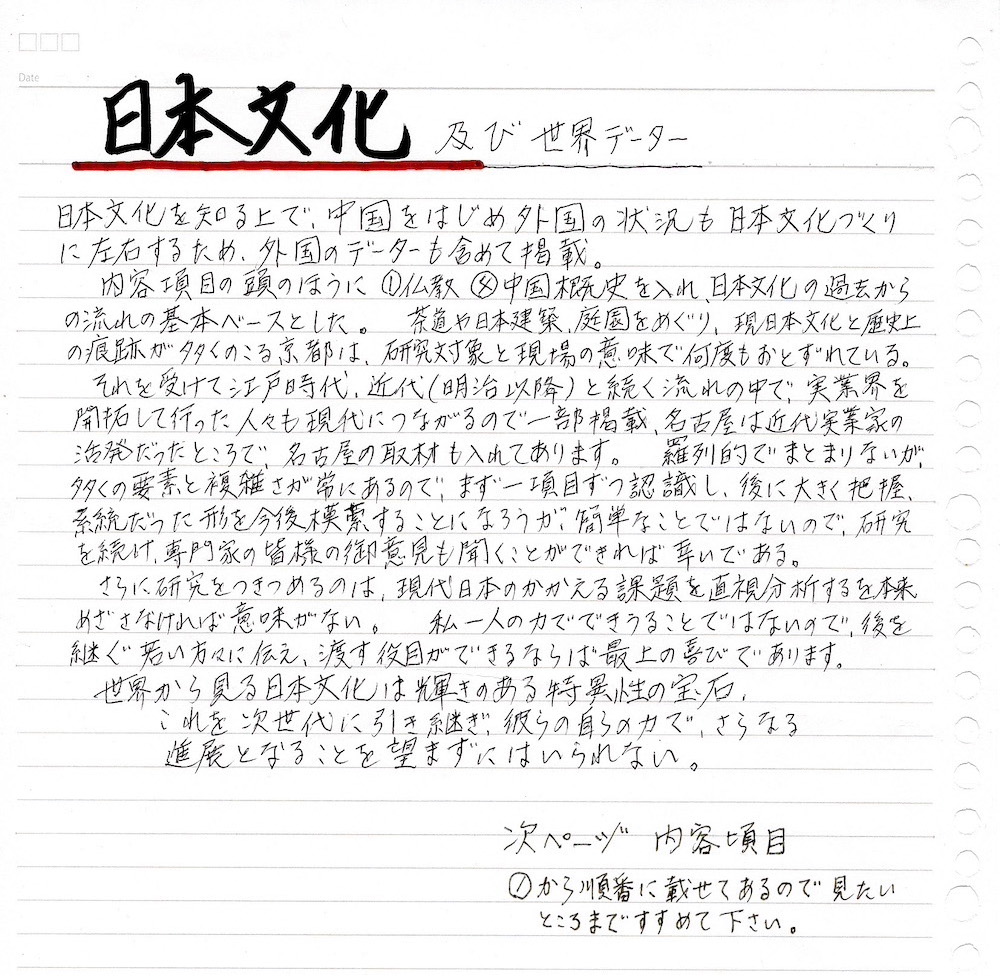 Date
日本文化 及び世界データー
日本文化を知る上で、中国をはじめ外国の状況も日本文化づくり
に左右するため、外国のデーターも含めて掲載。
内容項目の頭のほうに①仏教⑧中国概況史を入れ、日本文化の過去から
の流れの基本ベースとした。 茶道や日本建築、庭園をめぐり、現日本文化と歴史上
の痕跡が多くのこる京都は、研究対象と現場の意味で何度もおとずれている。
それを受けて江戸時代、近代(明治以降)と続く流れの中で、実業界を
開拓して行った人々も現代につながるので一部掲載、名古屋は近代実業家の
活発だったところで、名古屋の取材も入れてあります。 羅列的でまとまりないが、
多くの要素と複雑さが常にあるので、まず一項目ずつ認識し、後に大きく把握、
系統だった形を今後模索することになろうが、簡単なことではないので、研究
を続け、専門家の皆様の御意見も聞くことができれば幸いである。
さらに研究をつきつめるのは、現代日本のかかえる課題を直視分析するを本来
めざさなければ意味がない。 私一人の力でできうることではないので、後を
継ぐ若い方々に伝え、渡す役目ができるならば最上の喜びであります。
世界から見る日本文化は輝きのある特異性の宝石、
これを次世代に引き継ぎ、彼らの自らの力で、さらなる
進展となることを望まずにはいられない。
次ページ 内容項目
①から順番に載せてあるので見たい
ところまですすめて下さい。